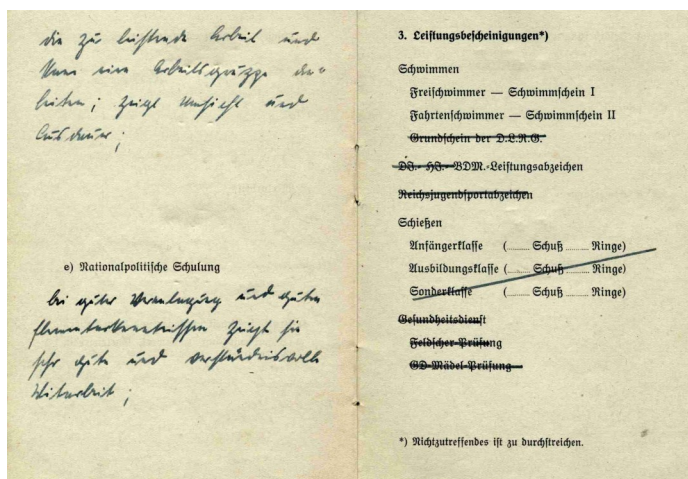 die zu leistende Arbeit und
kann eine Arbeitsgruppe an-
leiten; zeigt Umsicht und
Ausdauer;
e) Nationalpolitische Schulung
bei guter Veranlagung und guten
Elementarkenntnissen zeigt sie
sehr gute und verständnisvolle
Mitarbeit;
3. Leistungsbescheinigungen*)
Schwimmen
Freischwimmer — Schwimmschein I
Fahrtenschwimmer — Schwimmschein II
Grundschein der D.L.R.G.
DJ.- HJ.- BDM.-Leistungsabzeichen
Reichsjugendsportabzeichen
Schießen
Anfängerklasse (........ Schuß ........ Ringe)
Ausbildungsklasse (........ Schuß ........ Ringe)
Sonderklasse (........ Schuß ........ Ringe)
Gesundheitsdienst
Feldscher-Prüfung
GD-Mädel-Prüfung
*) Nichtzutreffendes ist zu durchstreichen.